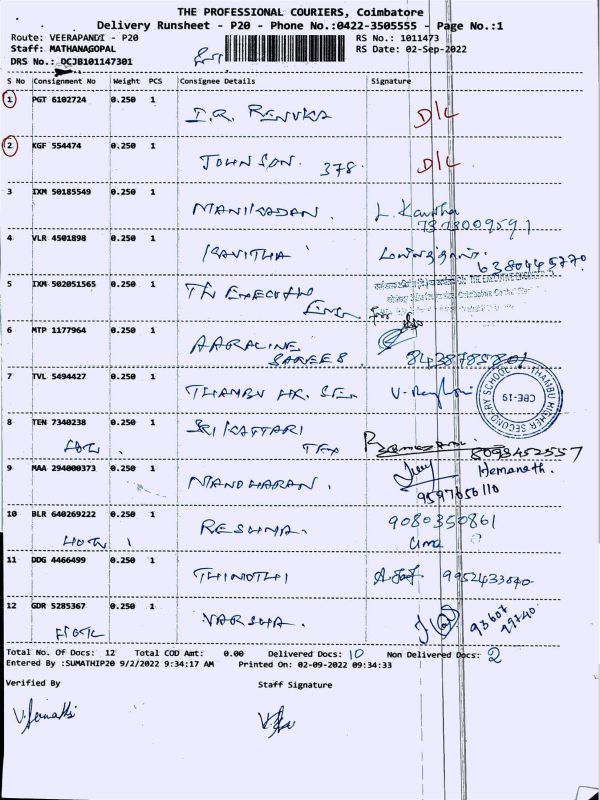 THE PROFESSIONAL COURIERS, Coimbatore
Delivery Runsheet - P20 - Phone No.:0422-3505555 - Page No.:1
Route: VEERAPANDI - P20 RS No.: 1011473
Staff: MATHANAGOPAL RS Date: 02-Sep-2022
DRS No.: DCJB101147301
S No Consignment No Weight PCS Consignee Details Signature
1 PGT 6102724 0.250 1 I.R. RENUKA D/L
2 KGF 554474 0.250 1 JOHNSON. 378. D/L
3 IXM 50185549 0.250 1 MANIKADAN. L. Kavitha
7373009591
4 VLR 4501898 0.250 1 KAVITHA
6380445770
5 IXM 502051565 0.250 1 TN EXECUTIVE
Engr for
6 MTP 1177964 0.250 1 AARALINE
SAREES. 8438785801
7 TVL 5494427 0.250 1 THAMBU HR. SEC
THAMBU HIGHER SECONDARY SCHOOL
CBE-19
8 TEN 7340238 0.250 1 SRI KATTARI
TEX 8098452557
9 MAA 294000373 0.250 1 MANOHARAN. Hemanath.
9597656110
10 BLR 640269222 0.250 1 RESHMA. 9080350861
Uma
11 DDG 4466499 0.250 1 THIMOTHI 9952433040
12 GDR 5285367 0.250 1 VARSHA. 93607
99740
Total No. Of Docs: 12 Total COD Amt: 0.00 Delivered Docs: 10 Non Delivered Docs: 2
Entered By :SUMATHIP20 9/2/2022 9:34:17 AM Printed On: 02-09-2022 09:34:33
Verified By Staff Signature